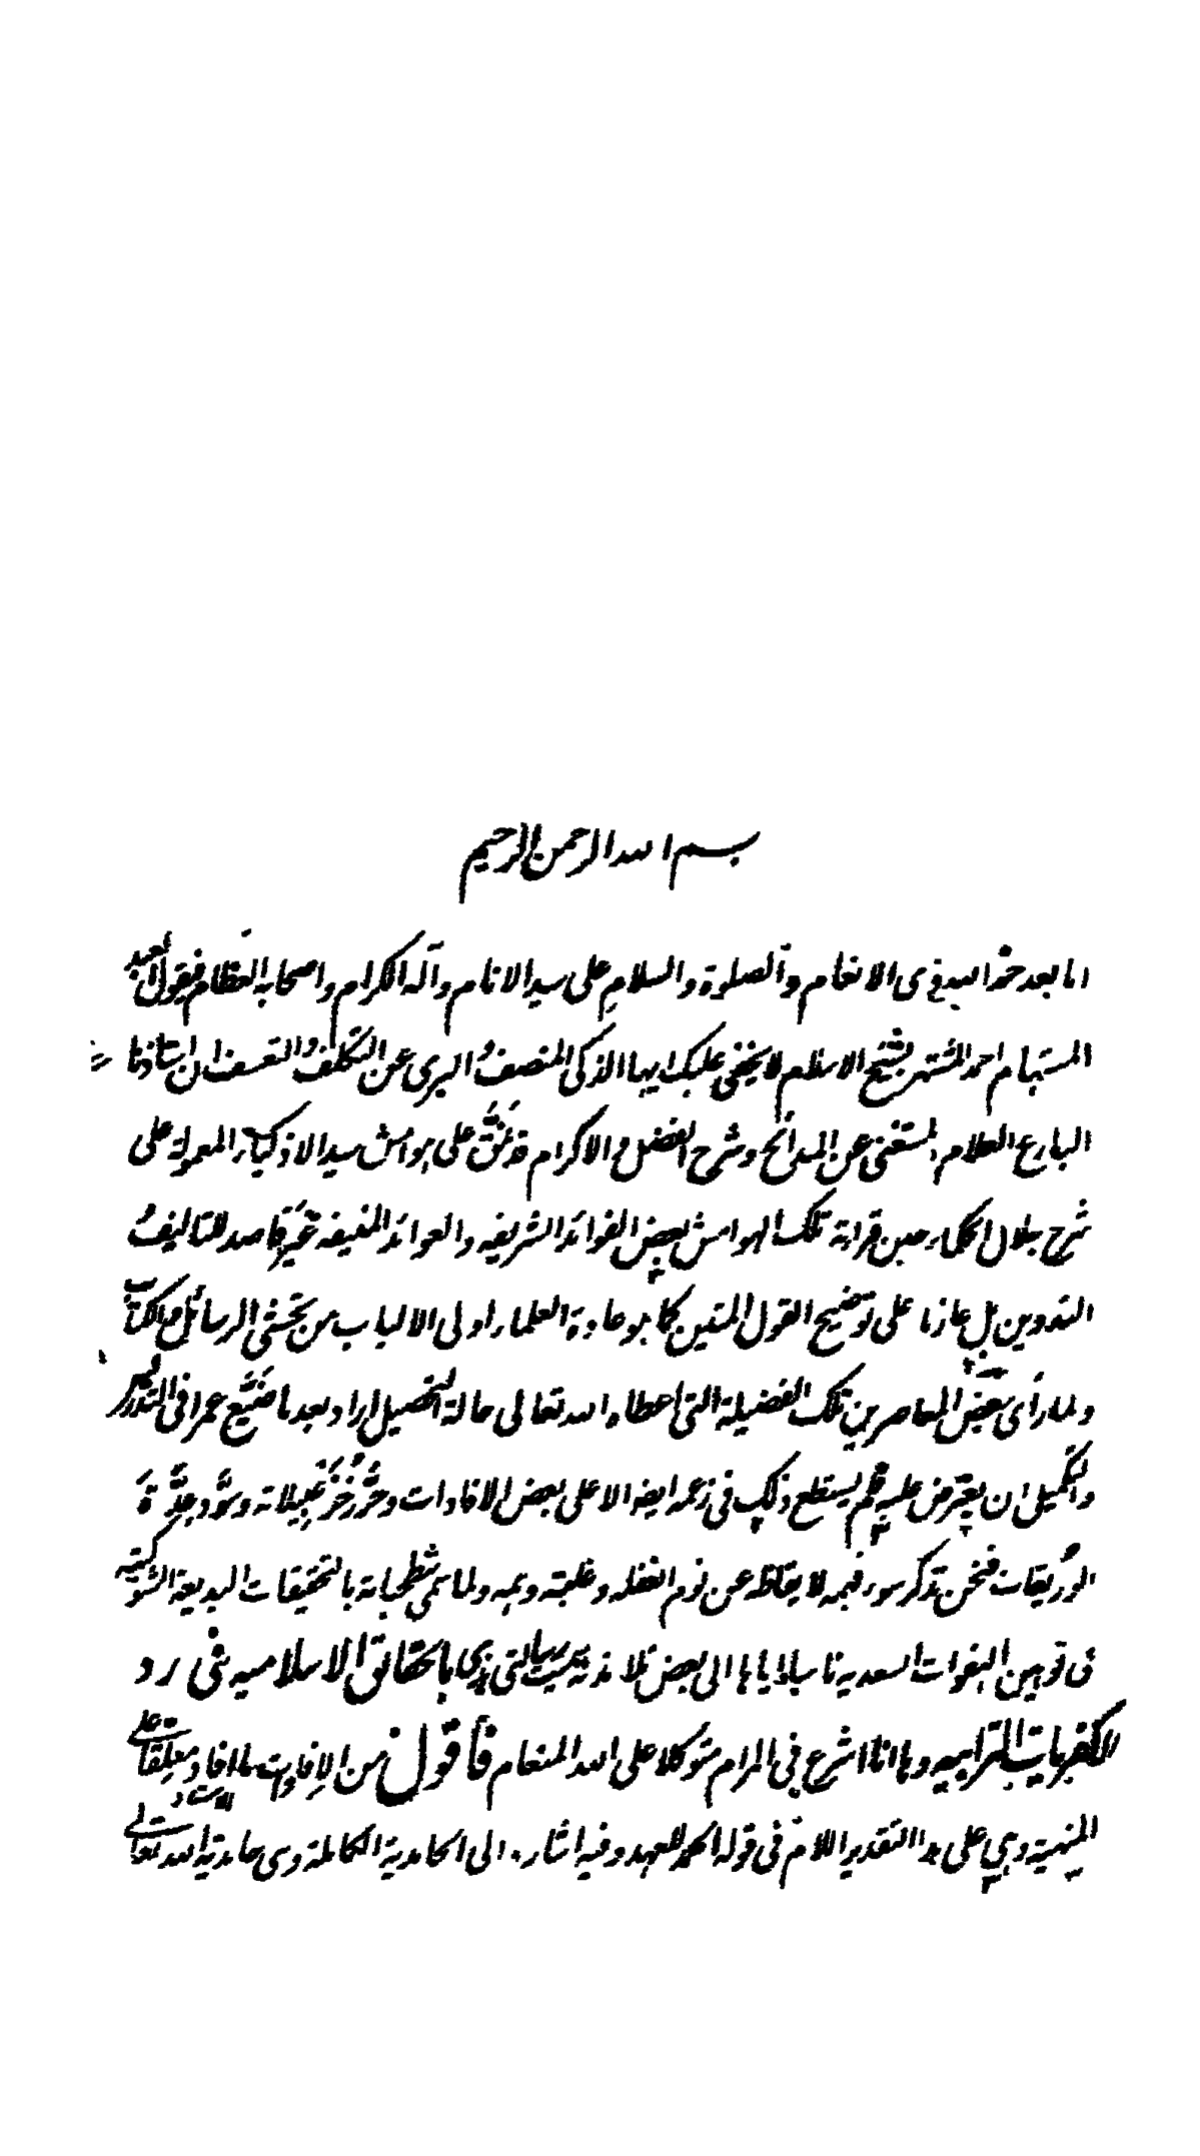 بسم الله الرحمن الرحيم
اما بعد حمد الله ذى الانعام والصلوة والسلام على سيد الانام وآله الكرام واصحابه العظام فيقول العبد
المستهام احمد المشتهر بشيخ الاسلام لا يخفى عليك ايها الذكى المنصف البرى عن التكلف والتعسف ان استاذنا
البارع العلام المستغنى عن المدائح وشرح الفضل والاكرام قد نمق على هوامش سيد الاذكياء المعمولة على
شرح جلال الحكماء حين قراءة تلك الهوامش بعض الفوائد الشريفه والعوائد المنيفه غير قاصد للتاليف
التدوين بل عازما على توضيح القول المتين كما هو عادة العلماء اولى الالباب من تحشى الرسائل والكتاب
ولما رأى بعض المعاصرين تلك الفضيلة التى اعطاه الله تعالى حالة التحصيل اراد بعد ما ضيع عمرا فى التدريس
والتكميل ان يعترض عليه فلم يستطع ذلك فى زعمه ايضا الا على بعض الافادات وحرر تخييلاته وسود عدة
الوريقات فنحن نذكر سوء فهمه لايقاظه عن نوم الغفله وغلبة وهمه ولما سمى شطحياته بالتحقيقات البديعة
فى توهين الهفوات السعديه ناسبا اياها الى بعض تلامذته سميت رسالتى هذه بالحقائق الاسلاميه فى رد
الكفريات الترابيه وها انا اشرع فى المرام متوكلا على الله المنعام فاقول من الافادات ما افاد معلقا على
المنهية وهى على هذا التقدير اللام فى قوله الحمد للعهد وفيه اشارة الى الحامدية الكاملة وهى حامدية الله تعالى